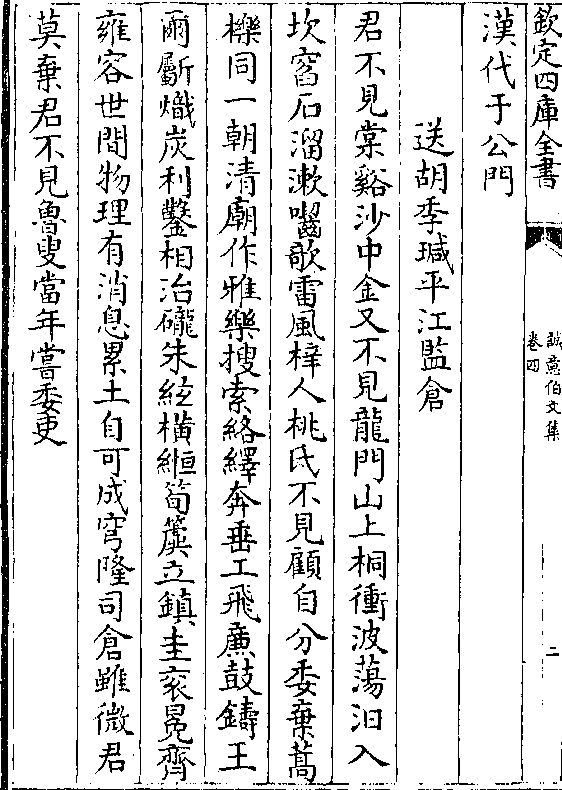 欽定四庫全書
誠意伯文集
卷四
二
漢代于公門
送胡季瑊平江監倉
君不見棠谿沙中金又不見龍門山上桐衝波蕩汩入
坎窞石溜漱囓歌雷風梓人桃氏不見顧自分委棄蒿
櫟同一朝清廟作雅樂搜索絡繹奔垂工飛廉鼓鑄王
爾斸熾炭利鑿相治礲朱絃橫緪筍簴立鎮圭衮冕齊
雍容世間物理有消息累土自可成穹隆司倉雖微君
莫棄君不見魯叟當年嘗委吏